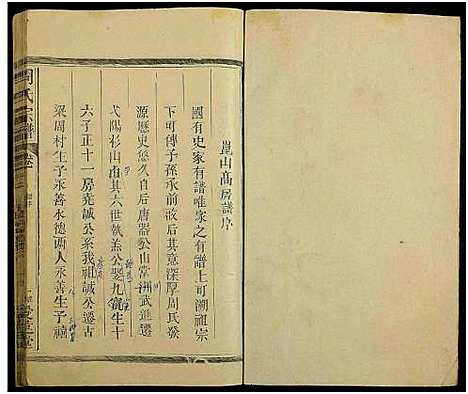 崑山高房譜序
國有史家有譜唯家之有譜上可溯祖宗
下可傳子孫承前啟后其意深厚周氏發
源歷史悠久自后唐器公由常洲武進遷
弋陽杉山南其六世執羔公娶九甯生十
六子正十一房堯誠公系我祖誠公遷古
梁周村生子永善永德两人永善生子禧
周氏宗譜